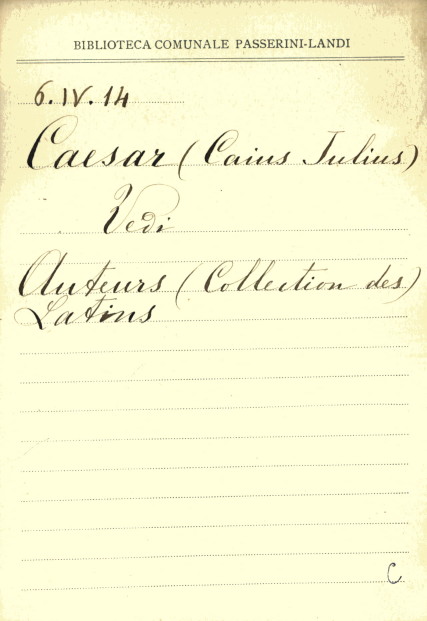 BIBLIOTECA COMUNALE PASSERINI-LANDI
6.IV.14
Caesar (Caius Julius)
Vedi
Auteurs (Collection des)
Latins
C